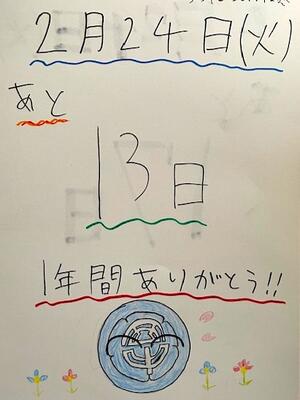 2月24日(火)
あと
13日
1年間ありがとう!!